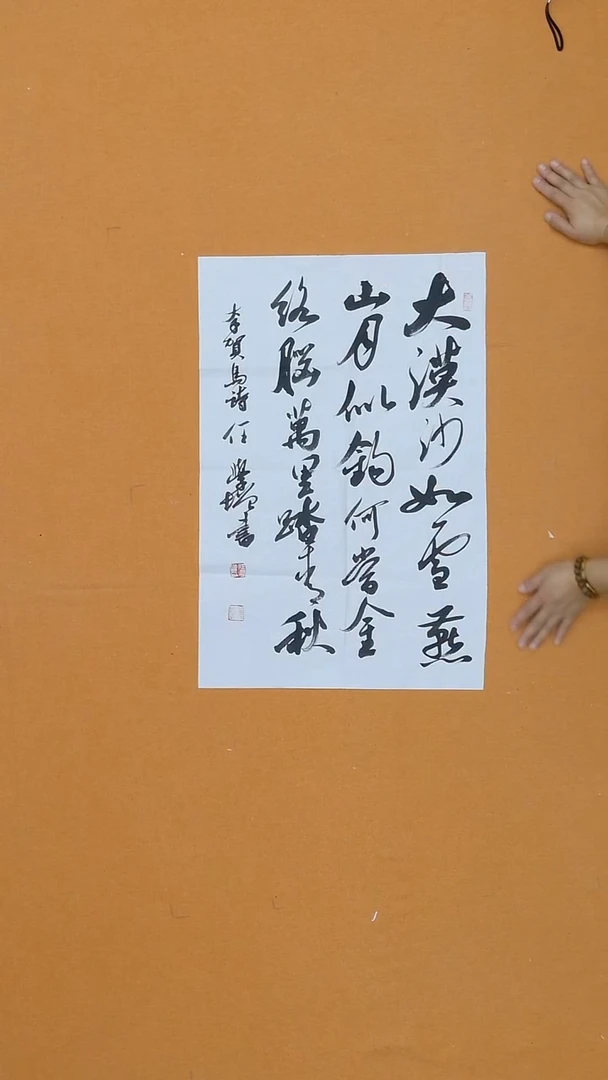 大漠沙如雪燕
山月似鈎何當金
絡腦萬里踏清秋
李賀馬詩 任 書